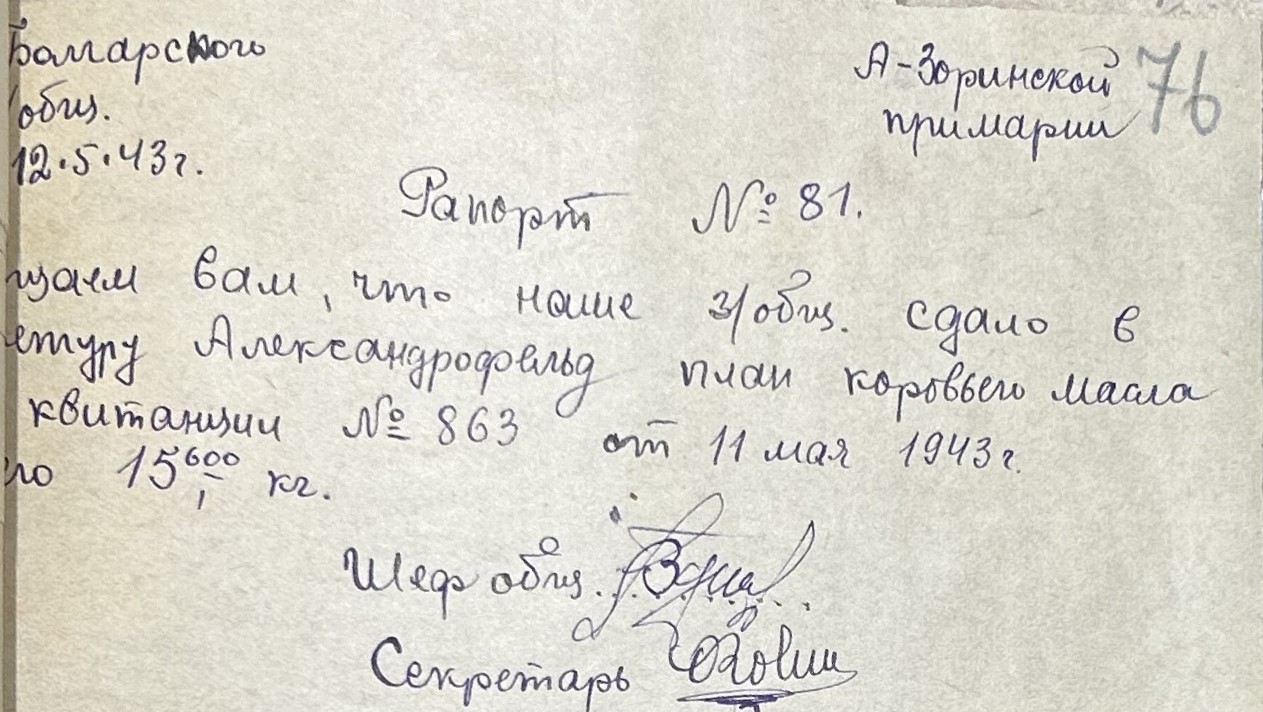 Болгарского
общ.
12.5.43г.
А-Зоринской
примарии
76
Рапорт № 81.
щаем вам, что наше з/общ. сдало в
етуру Александрофельд план коровьего масла
квитанции № 863 от 11 мая 1943г.
го 15,600 кг.
Шеф общ.
Секретарь